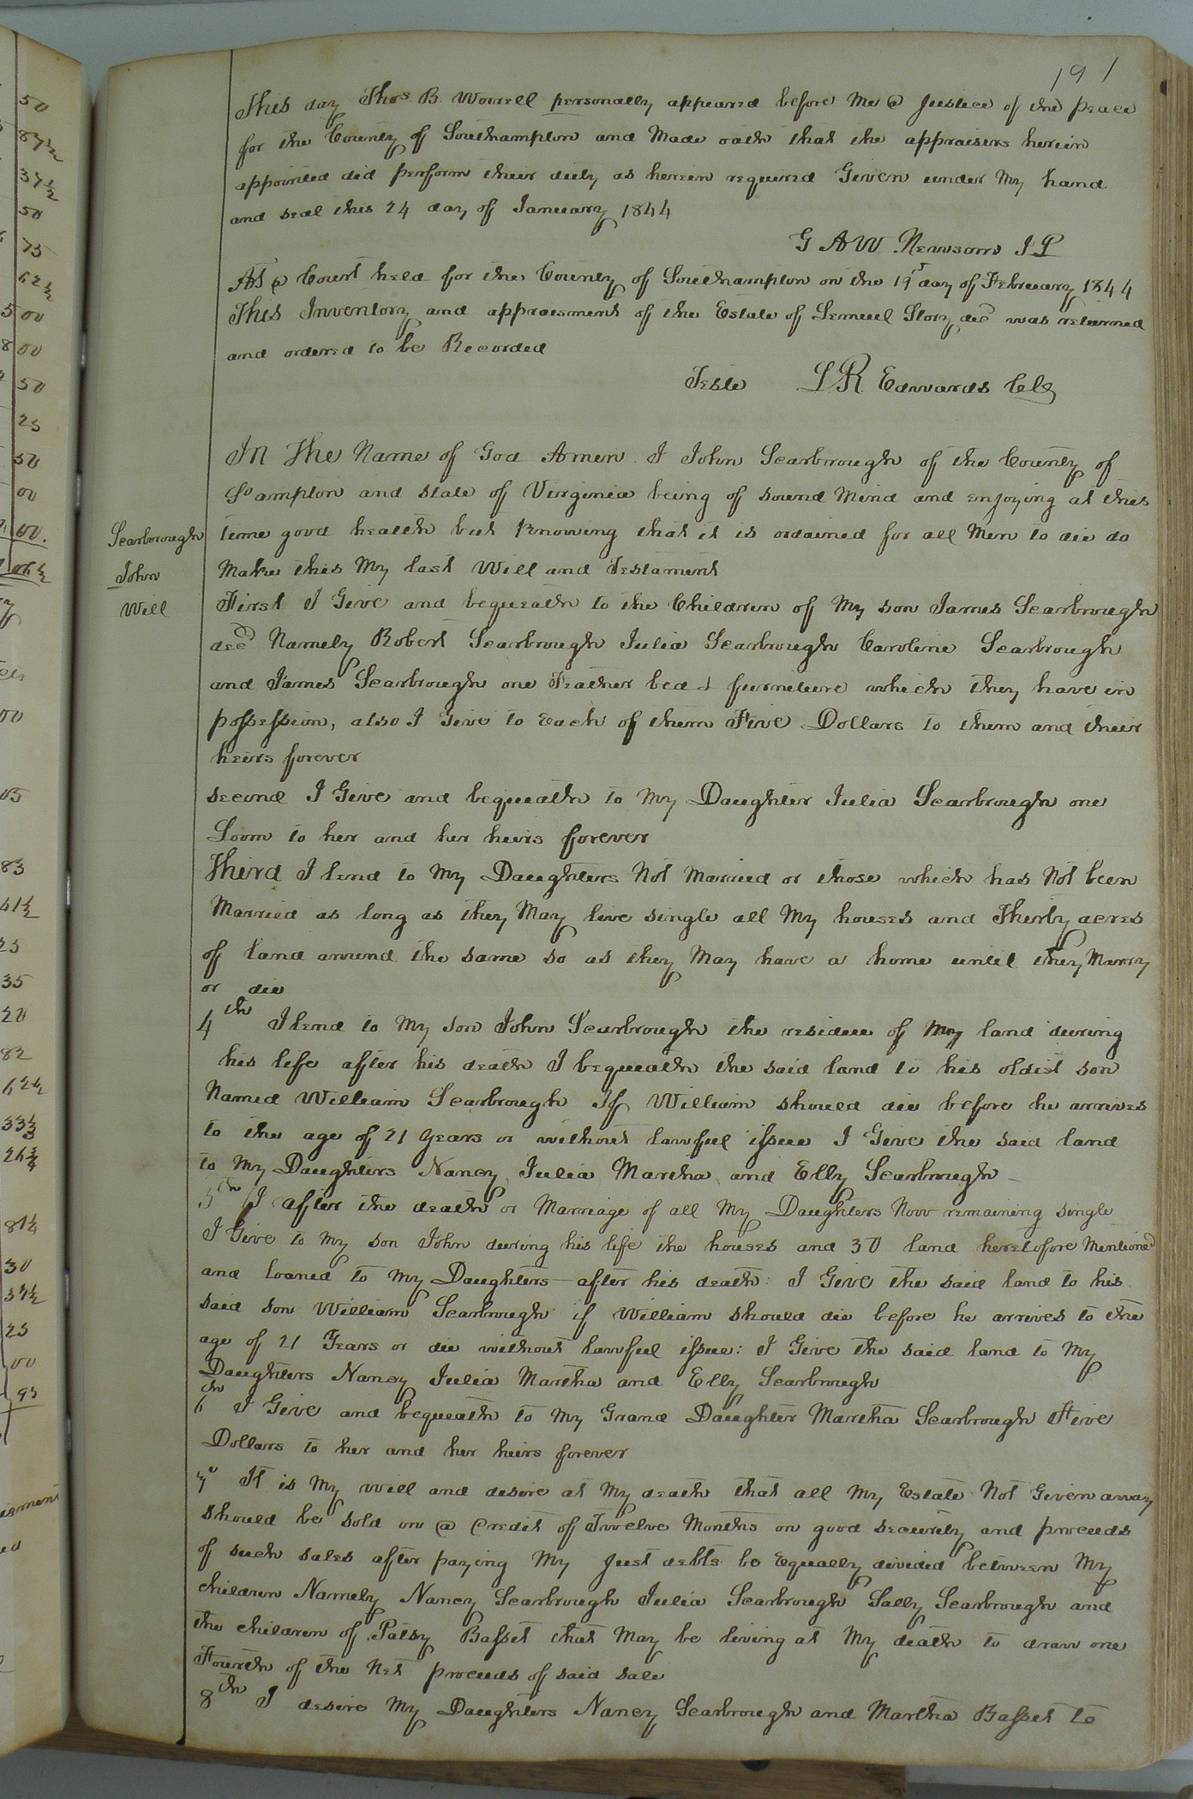 191
This day Thos. B. Worrell personally appeared before me a Justice of the peace
for the County of Southampton and Made oath that the appraisers herein
appointed did perform their duty as herein required Given under My hand
and seal this 24 day of January 1844
G A W Newsom J P
At a Court held for the County of Southampton on the 19th day of February 1844
This Inventory and appraisment of the Estate of Lemuel Story decd was returned
and ordered to be Recorded
Teste L R Edwards Clk
Scarbrough
John
Will
In The Name of God Amen I John Scarbrough of the County of
So ampton and state of Virginia being of sound Mind and enjoying at this
time good health but Knowing that it is ordained for all Men to die do
Make this My last Will and Testament
First I Give and bequeath to the Children of My son James Scarbrough
decd Namely Robert Scarbrough Julia Scarbrough Caroline Scarbrough
and James Scarbrough one Feather bed & furniture which they have in
possession, also I Give to Each of them Five Dollars to them and their
heirs forever
second I Give and bequeath to My Daughter Julia Scarbrough one
Loom to her and her heirs forever
Third I lend to My Daughters Not Married or those which has Not been
Married as long as they May live single all My houses and Thirty acres
of land around the same so as they May have a home until they Marry
or die
4th I lend to My son John Scarbrough the residue of My land during
his life after his death I bequeath the said land to his oldest son
Named William Scarbrough If William should die before he arrives
to the age of 21 years or without lawful issue I Give the said land
to My Daughters Nancy Julia Martha and Elly Scarbrough
5th I after the death or Marriage of all My Daughters Now remaining single
I Give to My son John during his life the houses and 30 land heretofore Mentioned
and loaned to My Daughters after his death: I Give the said land to his
said son William Scarbrough if William should die before he arrives to the
age of 21 Years or die without lawful issue: I Give the said land to My
Daughters Nancy Julia Martha and Elly Scarbrough
6th I Give and bequeath to My Grand Daughter Martha Scarbrough Five
Dollars to her and her heirs forever
7th It is My will and desire at My death that all My Estate Not Given away
should be sold on a Credit of Twelve Months on good security and proceeds
of such sales after paying My Just debts be Equally divided between My
children Namely Nancy Scarbrough Julia Scarbrough Sally Scarbrough and
the children of Patsy Basset that May be living at My death to draw one
Fourth of the Net proceeds of said sale
8th I desire My Daughters Nancy Scarbrough and Martha Basset to